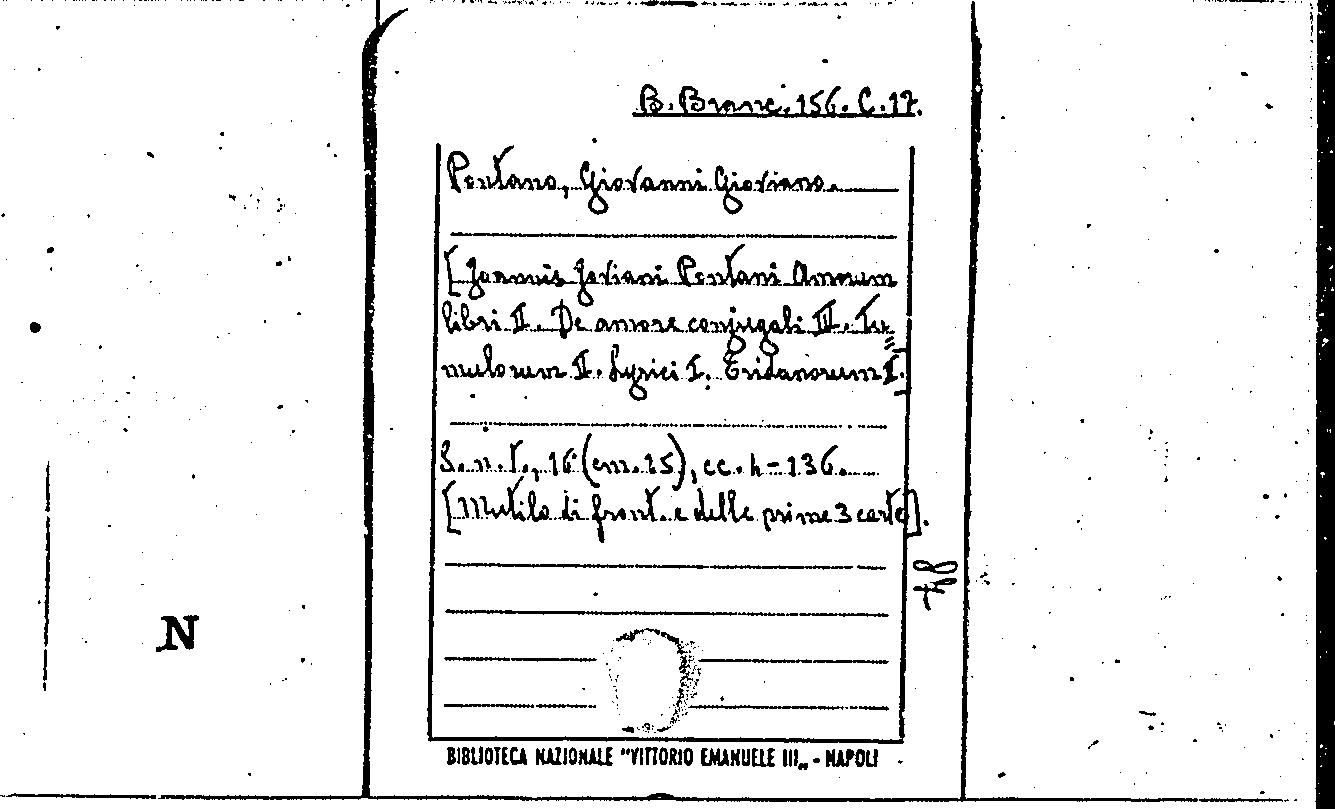 B. Branc. 156. C. 17.
Pontano, Giovanni Gioviano.
[Joannis Joviani Pontani Amorum
libri II. De amore conjugali III. Tu=
mulorum II. Lyrici I. Eridanorum I.]
S. n. t., 16° (cm. 15), cc. 4-136.
[Mutilo di front. e delle prime 3 carte].
N
BIBLIOTECA NAZIONALE "VITTORIO EMANUELE III„ - NAPOLI